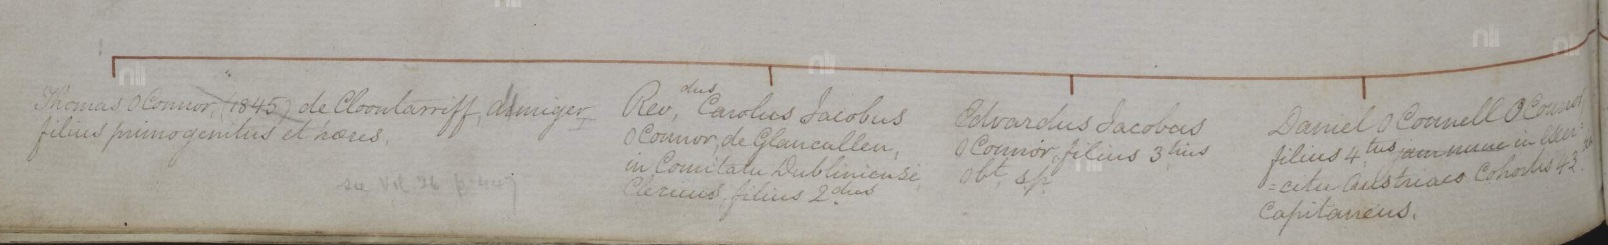 Thomas O Connor, (1845) de Cloontarriff, Armiger
filius primogenitus et hæres.
see Vol. 26 p.
Rev,dus Carolus Jacobus
O Connor, de Glancullen,
in Comitatu Dubliniensi,
Clericus, filius 2.dus
Edvardus Jacobus
O Connor, filius 3tius
Obt, s,p,
Daniel O Connell O Connor,
filius 4,tus in Exer:
=citu Austriaco Cohortis 43
Capitaneus.